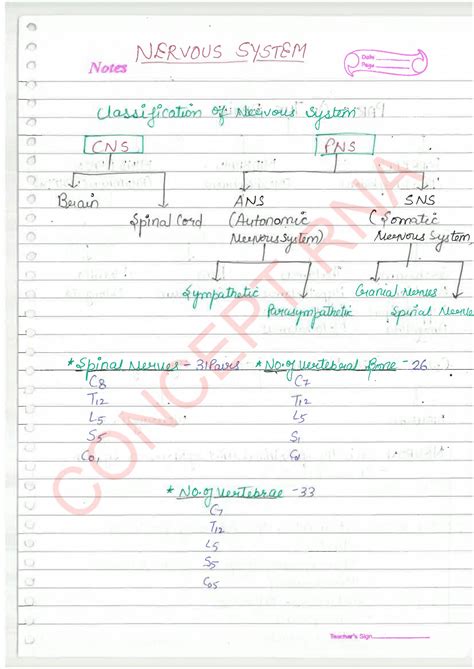 NERVOUS SYSTEM
Notes
Date
Page
Classification of Nervous System
CNS PNS
Brain Spinal Cord ANS SNS
(Autonomic (Somatic
Nervous System) Nervous System
Sympathetic Cranial Nerves
Parasympathetic Spinal Nerve
* Spinal Nerves - 31 Pairs * No. of vertebral Bone - 26
C8 C7
T12 T12
L5 L5
S5 S1
Co1 Co1
* No. of Vertebrae - 33
C7
T12
L5
S5
Co5
CONCEPT RNA
Teacher's Sign